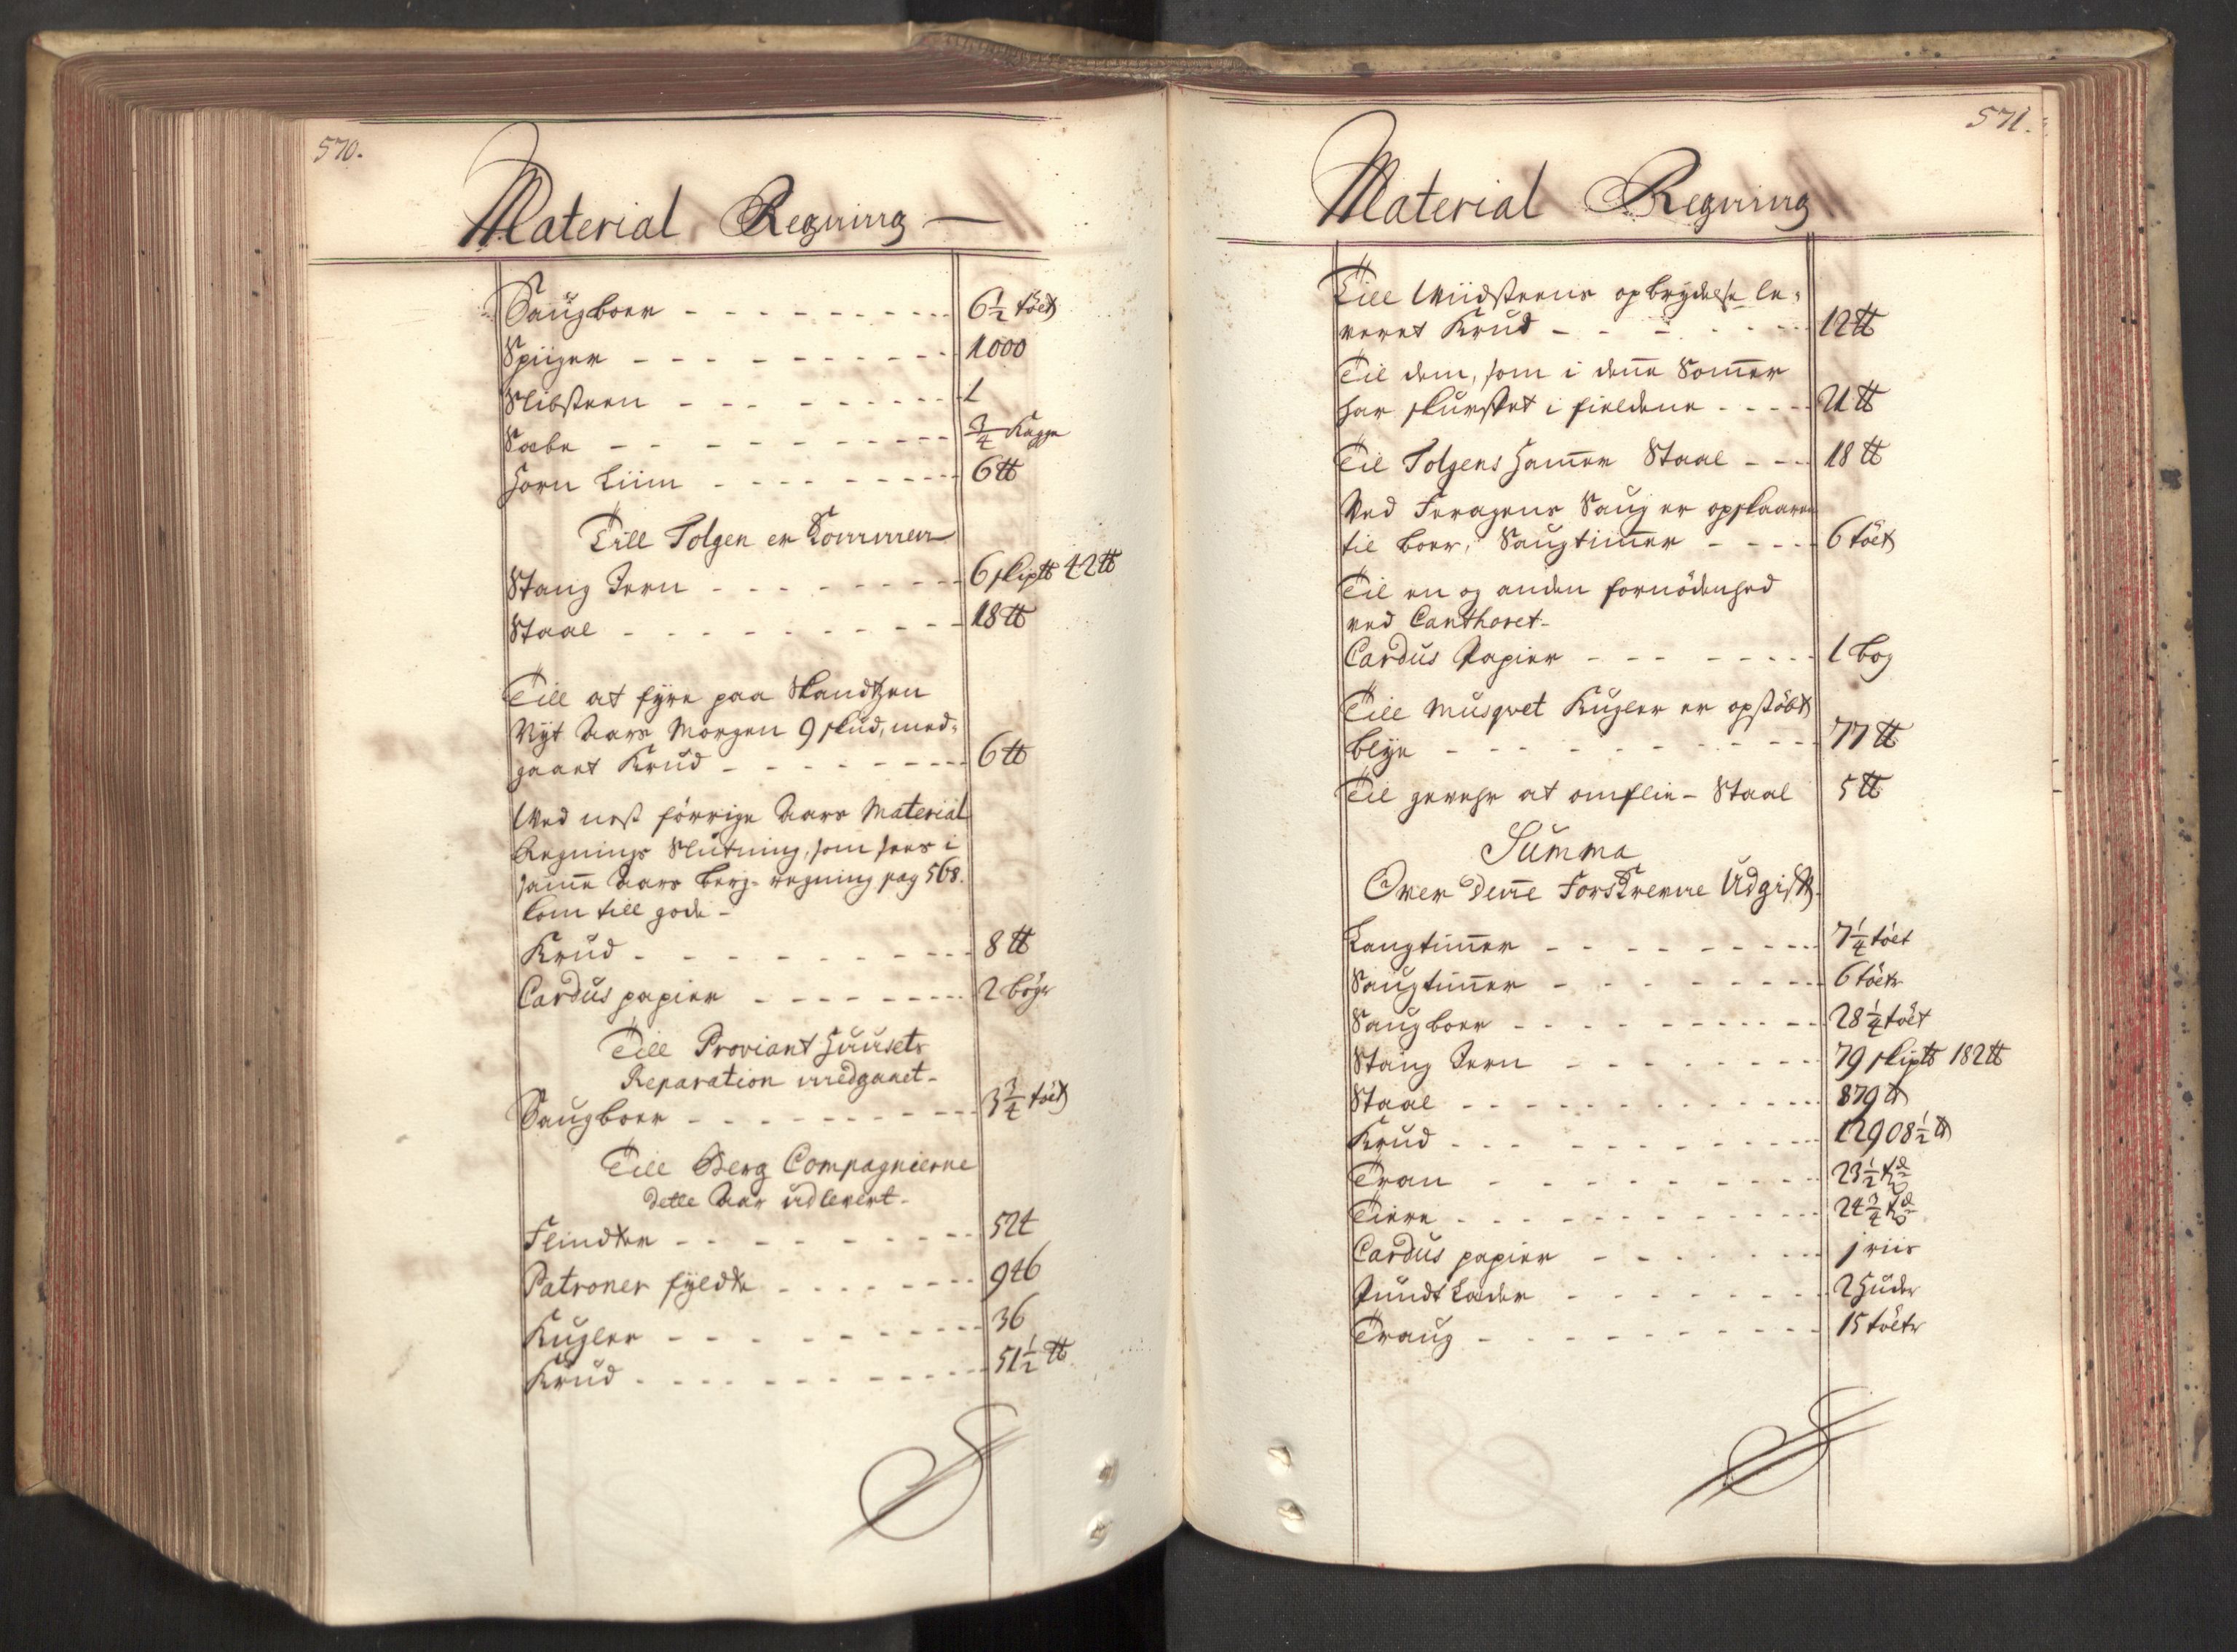 570.
Material Regning
Saugboer - - - - - - - - - 6½ töet
Spiiger - - - - - - - - - 1000
Slibsteen - - - - - - - - - 1
Sæbe - - - - - - - - - ¾ Kagge
Horn Liim - - - - - - - - - 6 ℔
Till Tolgen er Kommen
Stang Jern - - - - - - - - - 6 skip℔ 42 ℔
Staal - - - - - - - - - 18 ℔
Till at fyre paa Skandtzen
Nyt Aars Morgen 9 skud, med-
gaaet Krud - - - - - - - - - 6 ℔
Ved nest förrige Aars Material
Regnings Slutning, som sees i
samme Aars berg-regning pag 568.
kom till gode -
Krud - - - - - - - - - 8 ℔
Cardus papier - - - - - - - - - 2 böger
Till Proviant Huusets
Reparation medgaaet -
Saugboer - - - - - - - - - 3¾ töet
Till Berg Compagnierne
dette Aar udlevert -
Flindter - - - - - - - - - 524
Patroner fyldte - - - - - - - 946
Kugler - - - - - - - - - 36
Krud - - - - - - - - - 51½ ℔
571.
Material Regning
Till Wiidsteens opbrydelse le-
veret Krud - - - - - - 12 ℔
Til dem, som i denne Sommer
har skurffet i fieldene - - - - 21 ℔
Til Tolgens Hammer Staal - - - 18 ℔
Ved Feragens Saug er opskaaren
til boer, Saugtimmer - - - - 6 töet
Til en og anden fornödenhed
ved Canthoret -
Cardus Papier - - - - - - - 1 bog
Till Musqvet Kugler er opstöbt
blye - - - - - - - - - 77 ℔
Til gevehr at omflie - Staal 5 ℔
Summa
Over denne Forskrevne Udgift.
Langtimmer - - - - - - - - - 7¼ töet
Saugtimmer - - - - - - - - - 6 töeter
Saugboer - - - - - - - - - 28¼ töet
Stang Jern - - - - - - - - - 79 skip℔ 182 ℔
Staal - - - - - - - - - 879 ℔
Krud - - - - - - - - - 12908½ ℔
Tran - - - - - - - - - 23½ tdr
Tiere - - - - - - - - - 24¾ tdr
Cardus papier - - - - - - 1 riis
Pundt Læder - - - - - - - - - 2 Huder
Traug - - - - - - - - - 15 töeter